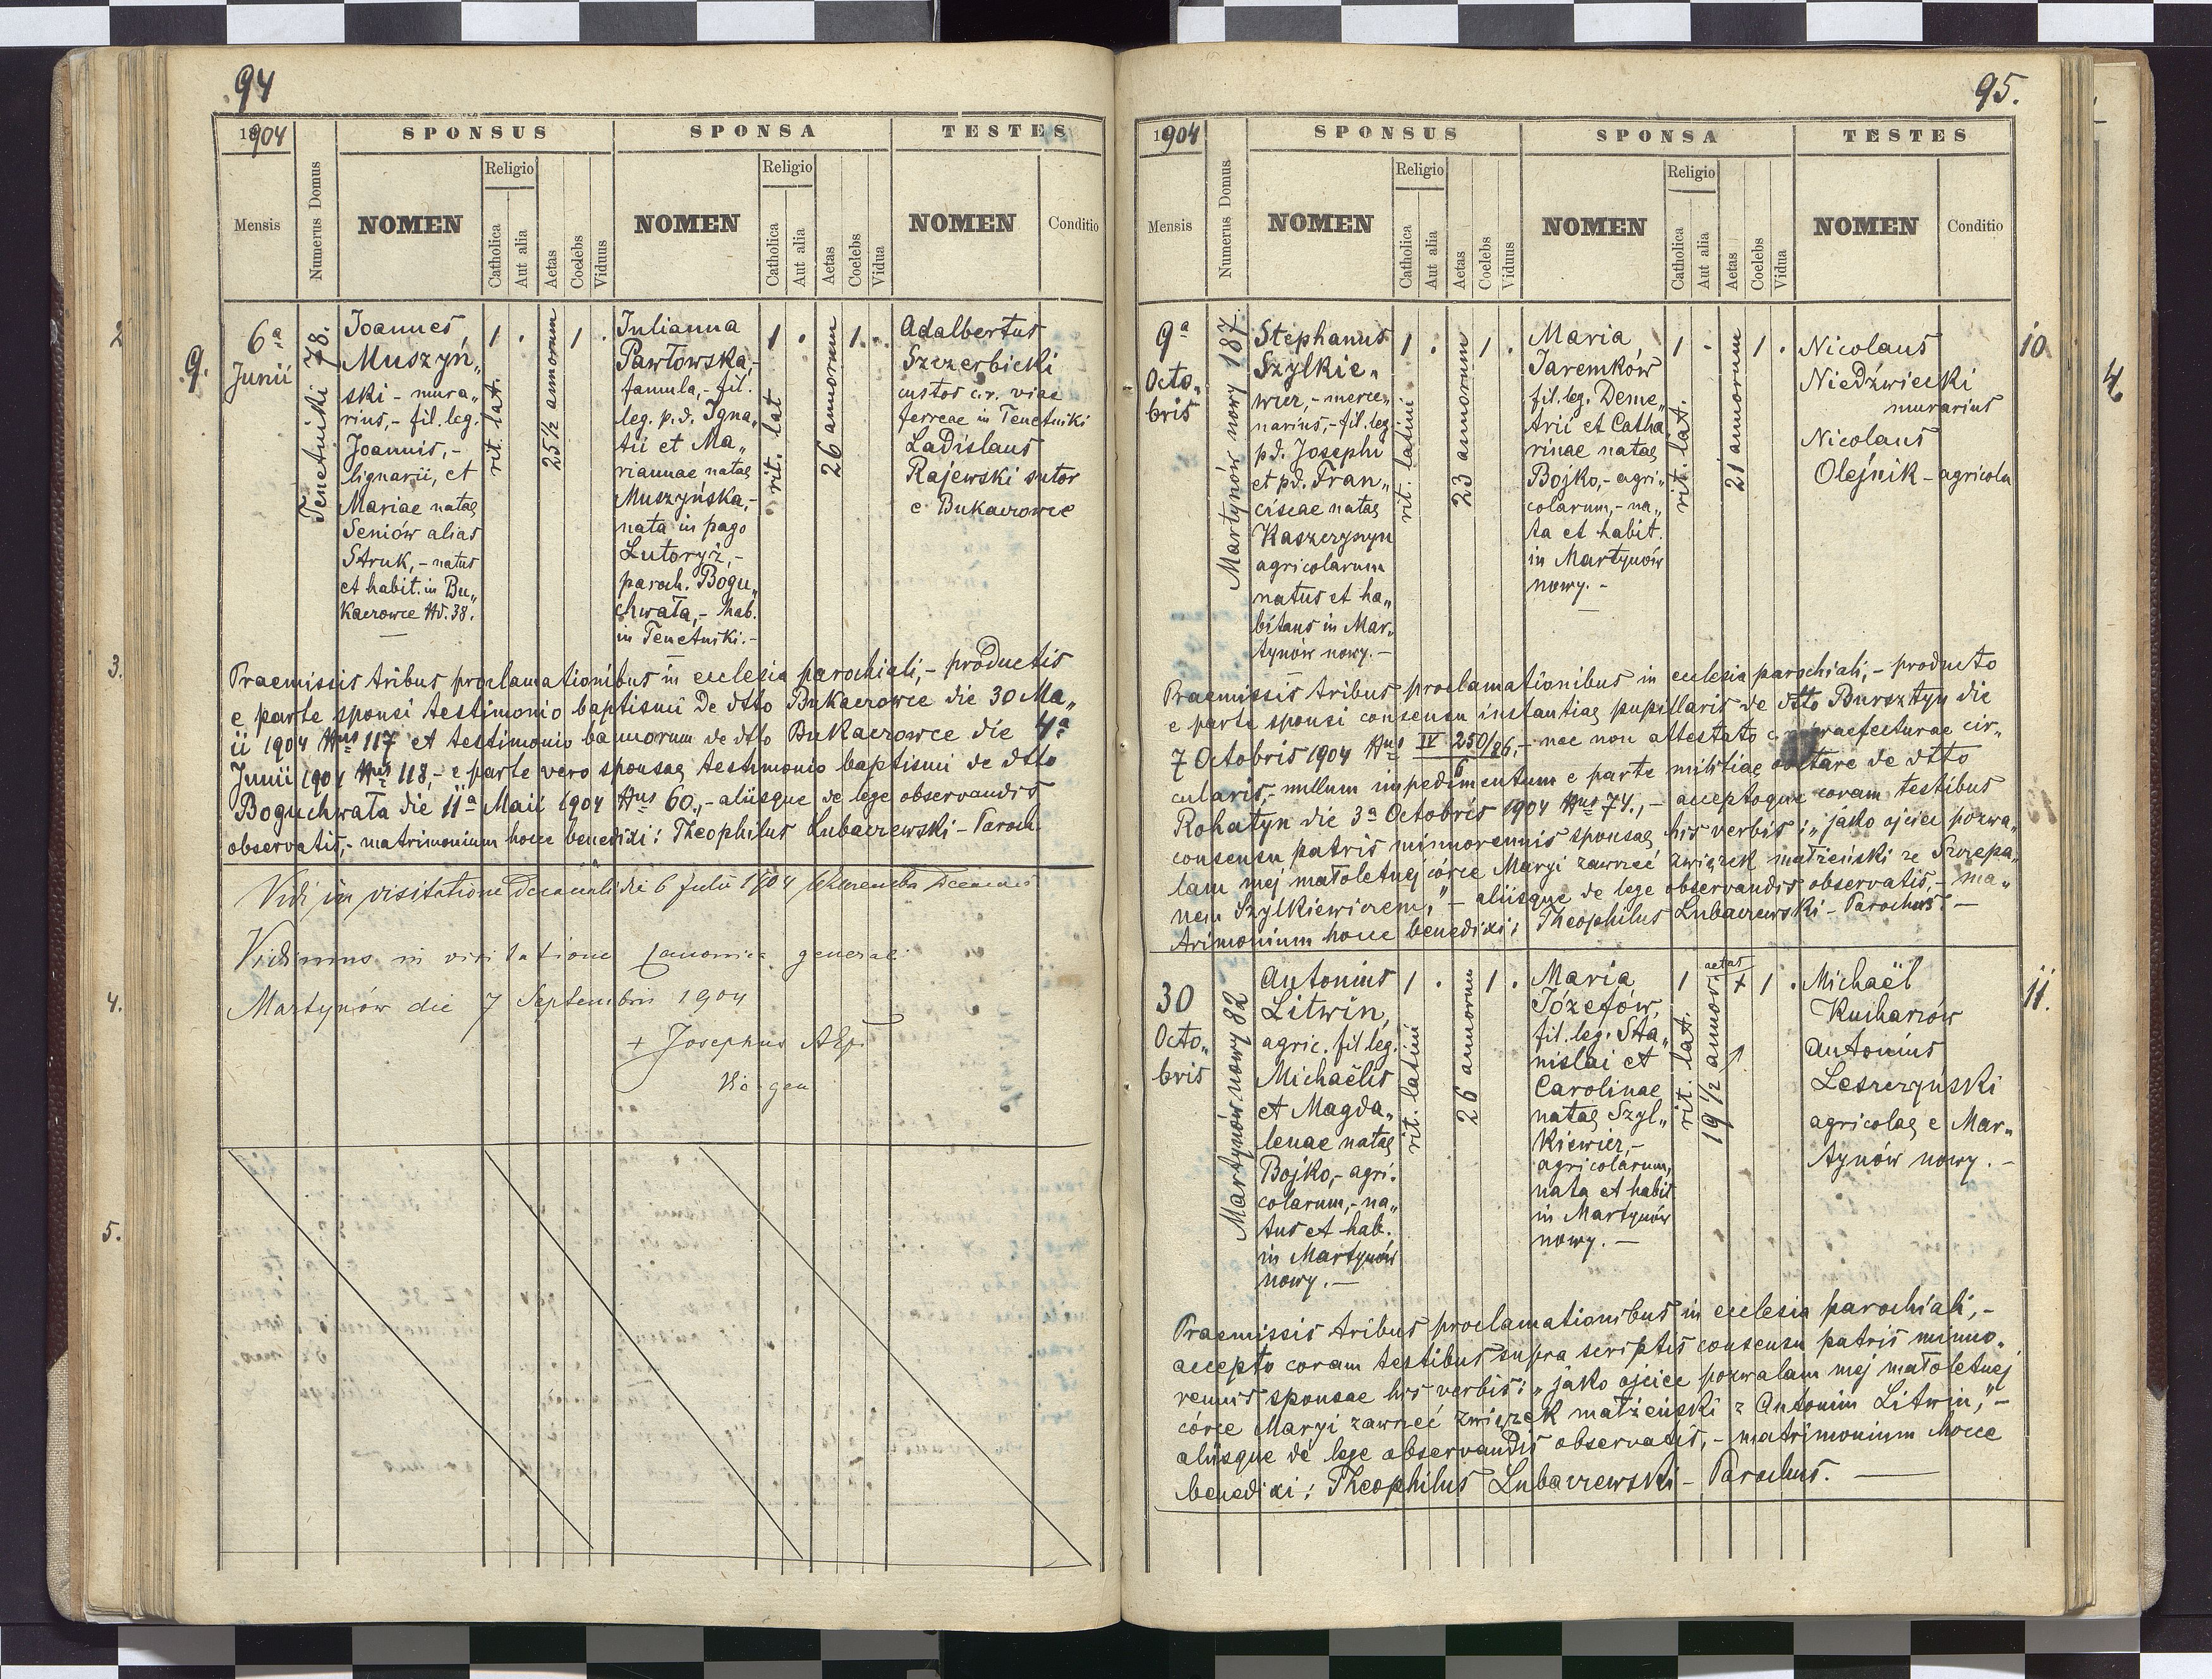 94
1904
SPONSUS
SPONSA
TESTES
Mensis
Numerus Domus
NOMEN
Religio
Catholica
Aut alia
Aetas
Coelebs
Viduus
NOMEN
Religio
Catholica
Aut alia
Aetas
Coelebs
Vidua
NOMEN
Conditio
9.
6a
Junii
Tenetniki 78.
Joannes
Muszyń„
ski - mura„
rius,- fil. leg.
Joannis,-
lignarii, et
Mariae natae
Seniów alias
Struk,- natus
et habit. in Bu„
kaczowce Nd. 38.
1 .
rit. lat.
25 1/2 annorum
1 .
Julianna
Pawłowska,-
famula,- fil.
leg. p.d. Igna„
tii et Ma„
riannae natae
Muszyńska,-
nata in pago
Lutoryż,-
paroch. Bogu„
chwała,- hab.
in Tenetniki.-
1 .
rit. lat
26 annorum
1 .
Adalbertus
Szczerbicki
custos c.r. viae
ferreae in Tenetniki
Ladislaus
Rajewski sutor
e Bukaczowce
Praemissis tribus proclamationibus in ecclesia parochiali,- productis
e parte sponsi testimonio baptismi de dtto Bukaczowce die 30 Ma„
ii 1904 Nus 117 et testimonio bannorum de dtto Bukaczowce die 4a
Junii 1904 Nus 118,- e parte vero sponsae testimonio baptismi de dtto
Boguchwała die 11a Maii 1904 Nus 60.,- aliisque de lege observandis
observatis,- matrimonium hocce benedixi: Theophilus Lubaczewski - Paroch.
Vidi in visitatione Decanali die 6 Julii 1904
Vidimus in visitatione canonica generali
Martynów die 7 Septembris 1904
+ Josephus AEp.
Vic. gen
2
3.
4.
5.
95.
1904
SPONSUS
SPONSA
TESTES
Mensis
Numerus Domus
NOMEN
Religio
Catholica
Aut alia
Aetas
Coelebs
Viduus
NOMEN
Religio
Catholica
Aut alia
Aetas
Coelebs
Vidua
NOMEN
Conditio
9a
Octo„
bris
Martynów nowy 187.
Stephanus
Szylkie„
wicz,- merce„
narius,- fil. leg.
pd. Josephi
et pd. Fran„
ciscae natae
Kaszczyszyn
agricolarum
natus et ha„
bitans in Mar„
tynów nowy.-
1 .
rit. latini
23 annorum
1 .
Maria
Jaremków
fil. leg. Deme„
trii et Catha
rinae natae
Bojko,- agri„
colarum,- na„
ta et habit.
in Martynów
nowy.-
1 .
rit. lat.
21 annorum
1 .
Nicolaus
Niedźwiecki
murarius
Nicolaus
Olejnik - agricola
10.
Praemissis tribus proclamationibus in ecclesia parochiali,- producto
e parte sponsi consensu instantiae pupillaris de dtto Bursztyn die
7 Octobris 1904 Nus IV 250/86,- nec non attestato c.r. praefecturae cir„
cularis,- nullum impedimentum e parte militiae obstare de dtto
Rohatyn die 3a Octobris 1904 Nus 74.,- acceptoque coram testibus
consensu patris minorennis sponsae his verbis: „jako ojciec pozwa„
lam mej małoletniej córce Maryi zawrzeć związek małżeński ze Szczepa„
nem Szylkiewiczem,"- aliisque de lege observandis observatis,- ma„
trimonium hocce benedixi: Theophilus Lubaczewski - Parochus.-
30
Octo„
bris
Martynów nowy 82
Antonius
Litwin,
agric. fil leg.
Michaëlis
et Magda„
lenae natae
Bojko,- agri„
colarum,- na„
tus et hab.
in Martynów
nowy.-
1 .
rit. latini
26 annorum
1 .
Maria
Józefów,
fil. leg. Sta„
nislai et
Carolinae
natae Szyl„
kiewicz,-
agricolarum,
nata et habit
in Martynów
nowy.-
1
rit. lat.
aetas
19 1/2 annor.
+
1 .
Michaël
Kucharzów
Antonius
Leszczyński
agricolae e Mar„
tynów nowy.-
11.
Praemissis tribus proclamationibus in ecclesia parochiali,-
accepto coram testibus supra scriptis consensu patris mino„
rennis sponsae his verbis: „jako ojciec pozwalam mej małoletniej
córce Maryi zawrzeć związek małżeński z Antonim Litwin,"-
aliisque de lege observandis observatis,- matrimonium hocce
benedixi: Theophilus Lubaczewski - Parochus.
4